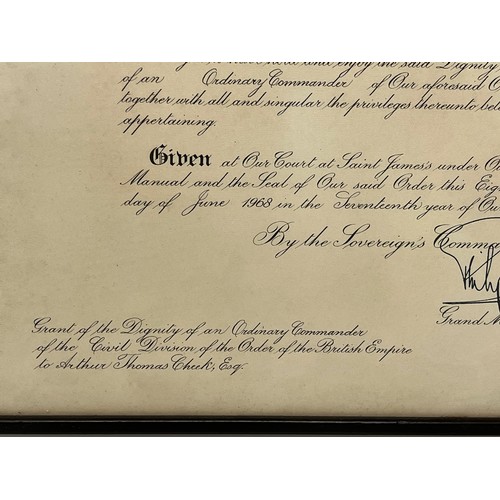 to hold and enjoy the said Dignity
of an Ordinary Commander of Our aforesaid O
together with all and singular the privileges thereunto bel
appertaining.
Given at Our Court at Saint James's under Ou
Manual and the Seal of Our said Order this Eig
day of June 1968 in the Seventeenth year of Ou
By the Sovereign's Comma
Philip
Grand M
Grant of the Dignity of an Ordinary Commander
of the Civil Division of the Order of the British Empire
to Arthur Thomas Cheek, Esq.